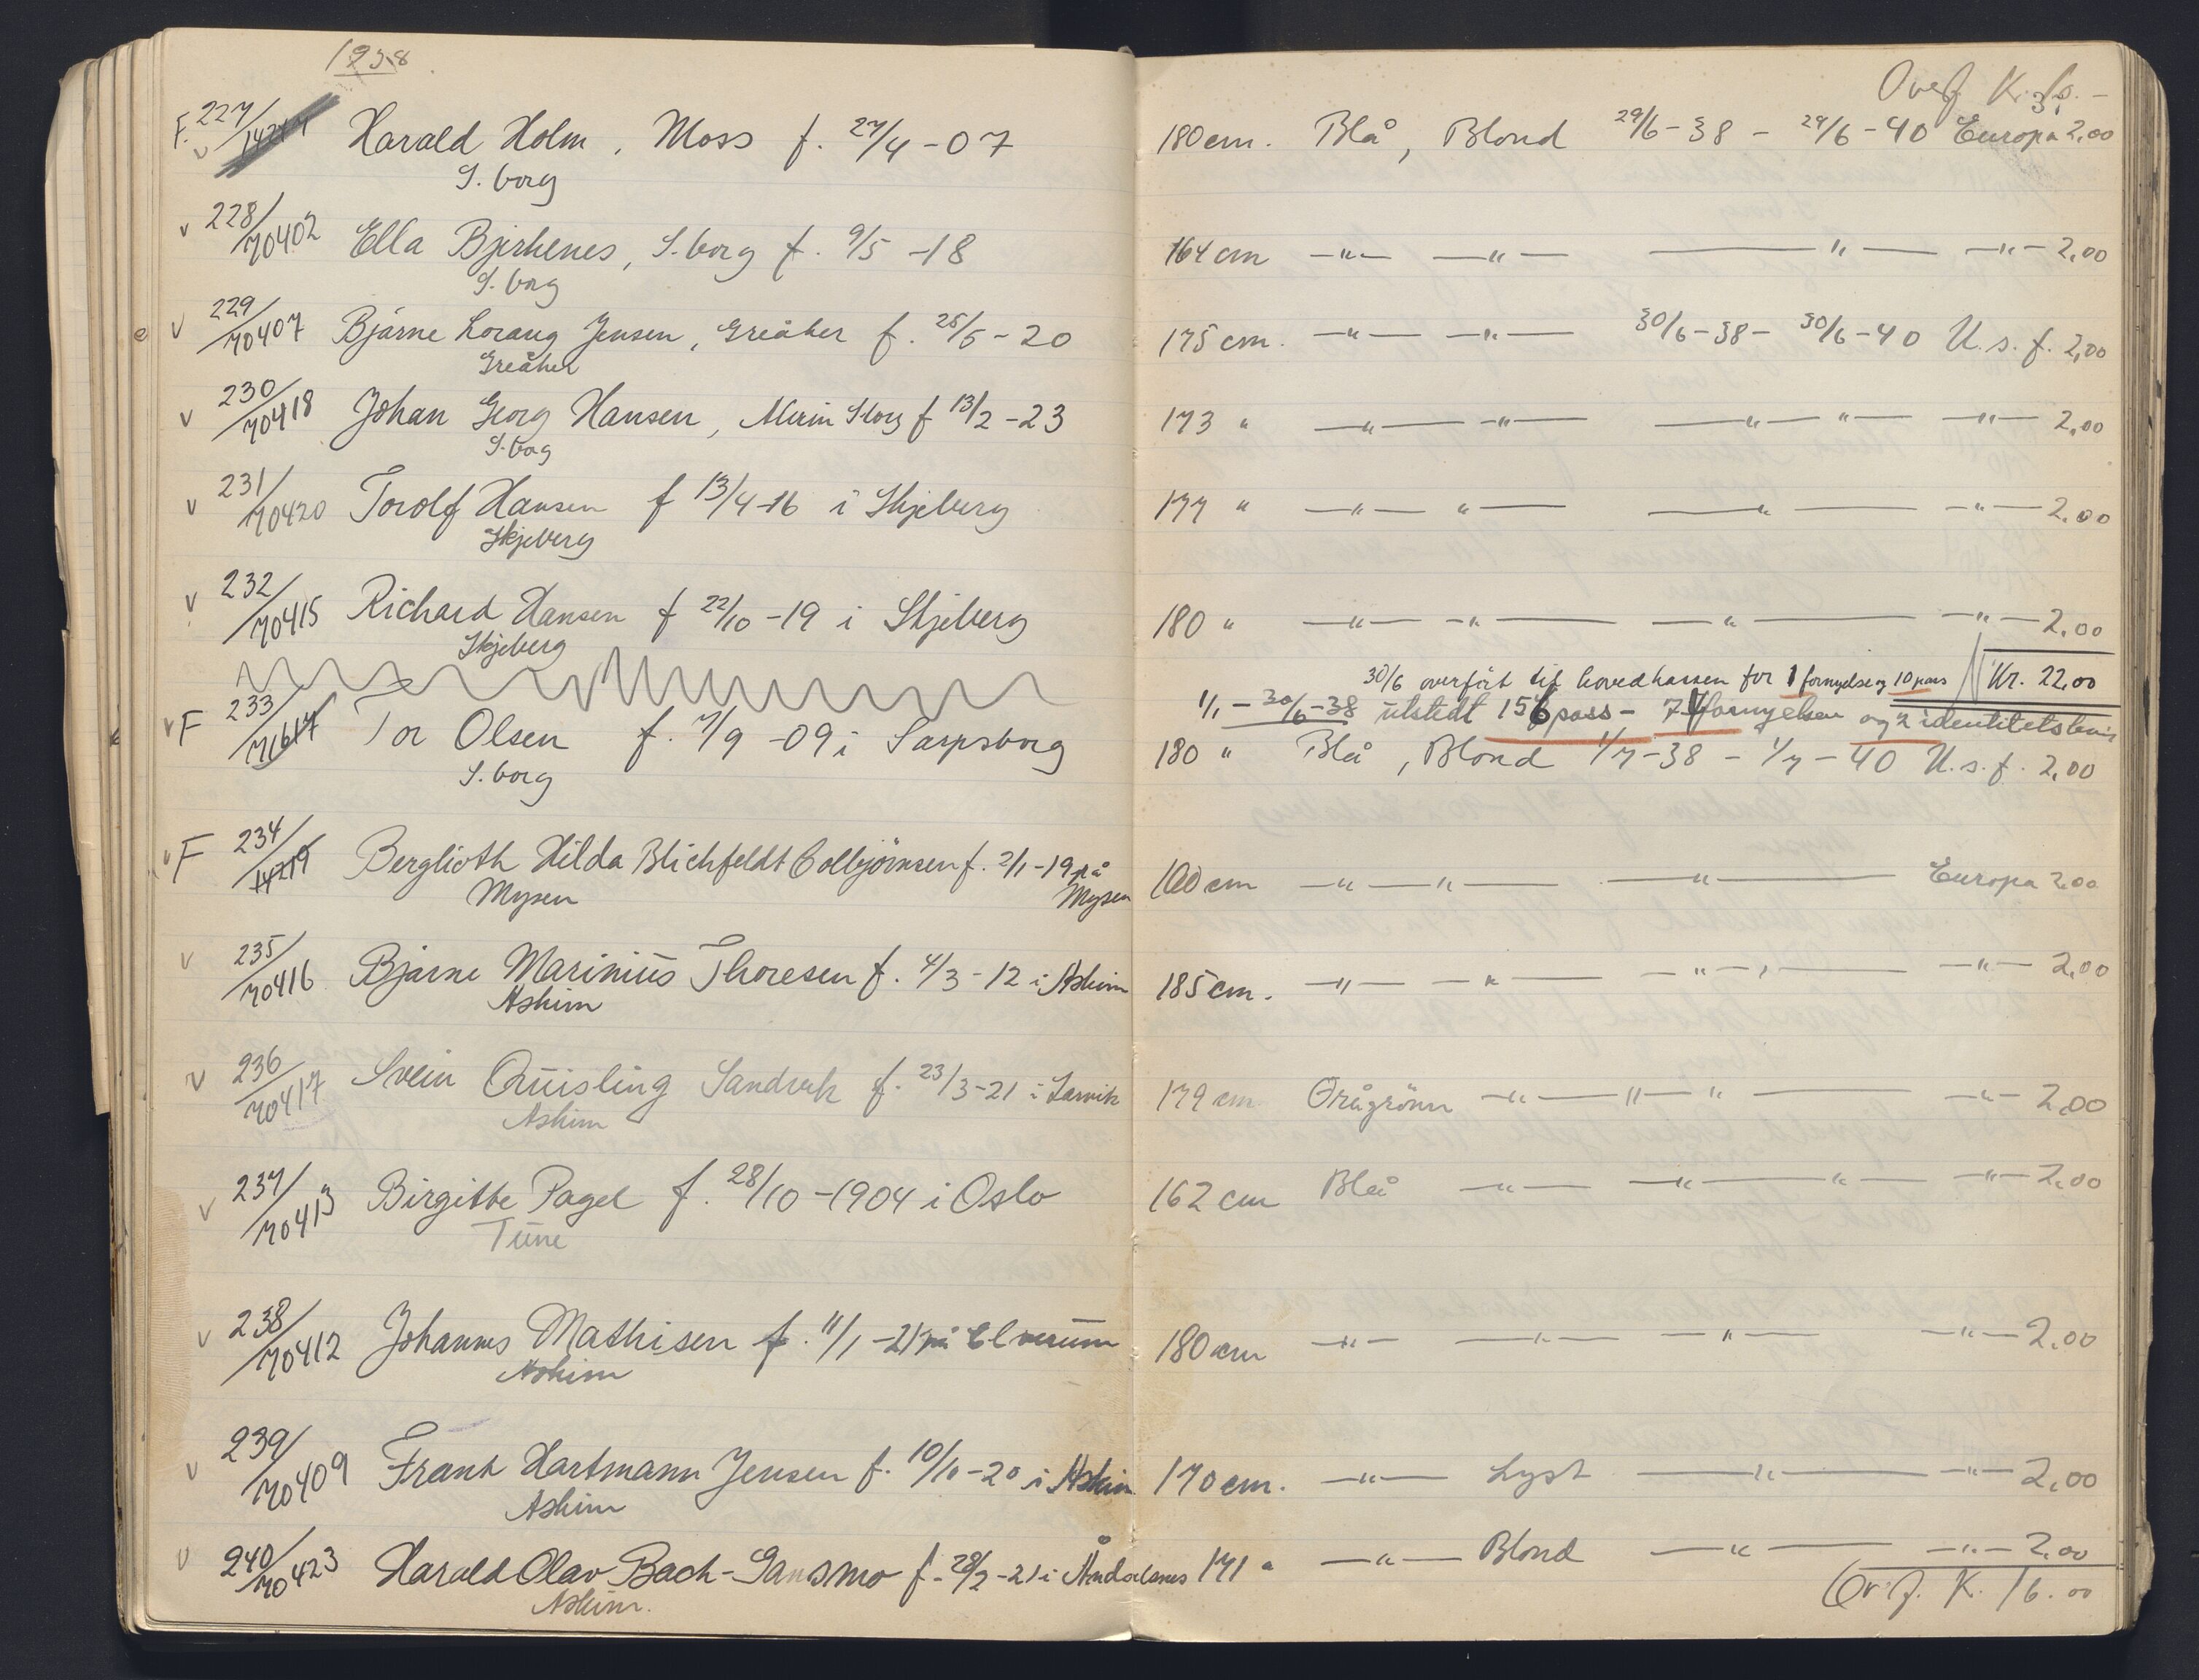 1938
Overf. K.
F. 227/ Harald Holm, Moss f. 27/4 -07 180 cm. Blå, Blond 29/6-38 - 29/6-40 Europa 2,00
v S. borg
v 228/70402 Ella Bjerkenes, S. borg f. 9/5 -18 164 cm -"- -"- -"- -"- 2,00
S. borg
v 229/70407 Bjárne Lorang Jensen, Greåker f. 25/5 -20 175 cm. -"- -"- 30/6-38- 30/6-40 U. s. f. 2,00
Greåker
v 230/70418 Johan Georg Hansen, f 13/2 -23 173 " -"- -"- -"- "- -"- 2,00
S. borg
v 231/70420 Torolf Hansen f 13/4-16 i Skjeberg 177 " -"- "- -"- -"- 2,00
Skjeberg
v 232/70415 Richard Hansen f 22/10 -19 i Skjeberg 180 " -"- -"- -"- -"- 2,00
Skjeberg
30/6 overført til hovedkassen for 1 fornyelse og 10 pass Kr. 22,00
1/1 - 30/6-38 utstedt 156 pass - fornyelser og 2 identitetsbevis
v F 233/71617 Tor Olsen f. 7/9 -09 i Sarpsborg 180 " Blå, Blond 1/7-38 - 1/7-40 U. s. f. 2,00
S. borg
v F 234/14219 Berglioth Hilda Blichfeldt Colbjörnsen f. 2/1 -19 på Mysen cm -"- "- -"- Europa 2,00
Mysen
v 235/70416 Bjarne Marinius Thoresen f. 4/3 -12 i Askim 185 cm. -"- -"- -"- -"- 2,00
Askim
v 236/70417 Svein Quisling Sandvik f. 23/3-21 i Larvik 179 cm Grågrönn -"- "- "- -"- 2,00
Askim
v 237/70413 Birgitte Pagel f. 28/10 -1904 i Oslo 162 cm Blå -"- -"- "- -"- 2,00
Tune
v 238/70412 Johannes Mathisen f. 11/1 -21 på Elverum 180 cm -"- -"- -"- -"- 2,00
Askim
v 239/70409 Frank Hartmann Jensen f. 10/10 -20 i Askim 170 cm. -"- Lyst -"- -"- 2,00
Askim
v 240/70423 Harald Olav Bach-Gansmo f. 28/2 -21 i Åndalsnes 171 " -"- Blond -"- -"- 2,00
Askim.
Overf. K. 16.00